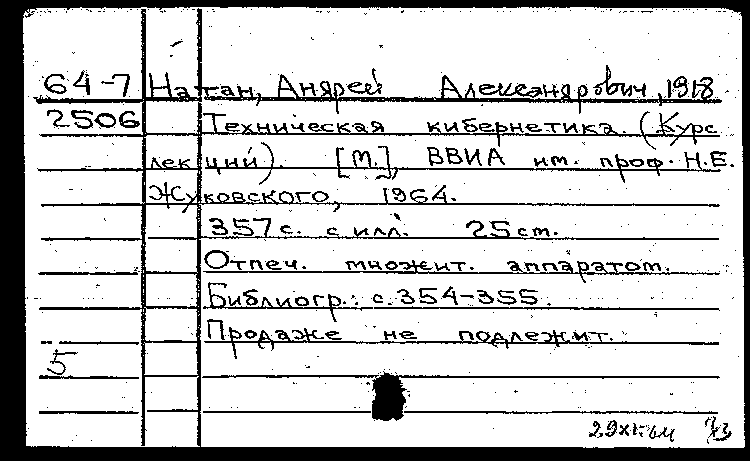 64-7 Натан, Андрей Александрович, 1918
2506 Техническая кибернетика. (Курс
лекций). [М.], ВВИА им. проф. Н.Е.
Жуковского, 1964.
357 с. с илл. 25 см.
Отпеч. множит. аппаратом.
Библиогр.: с. 354-355.
Продаже не подлежит.
5